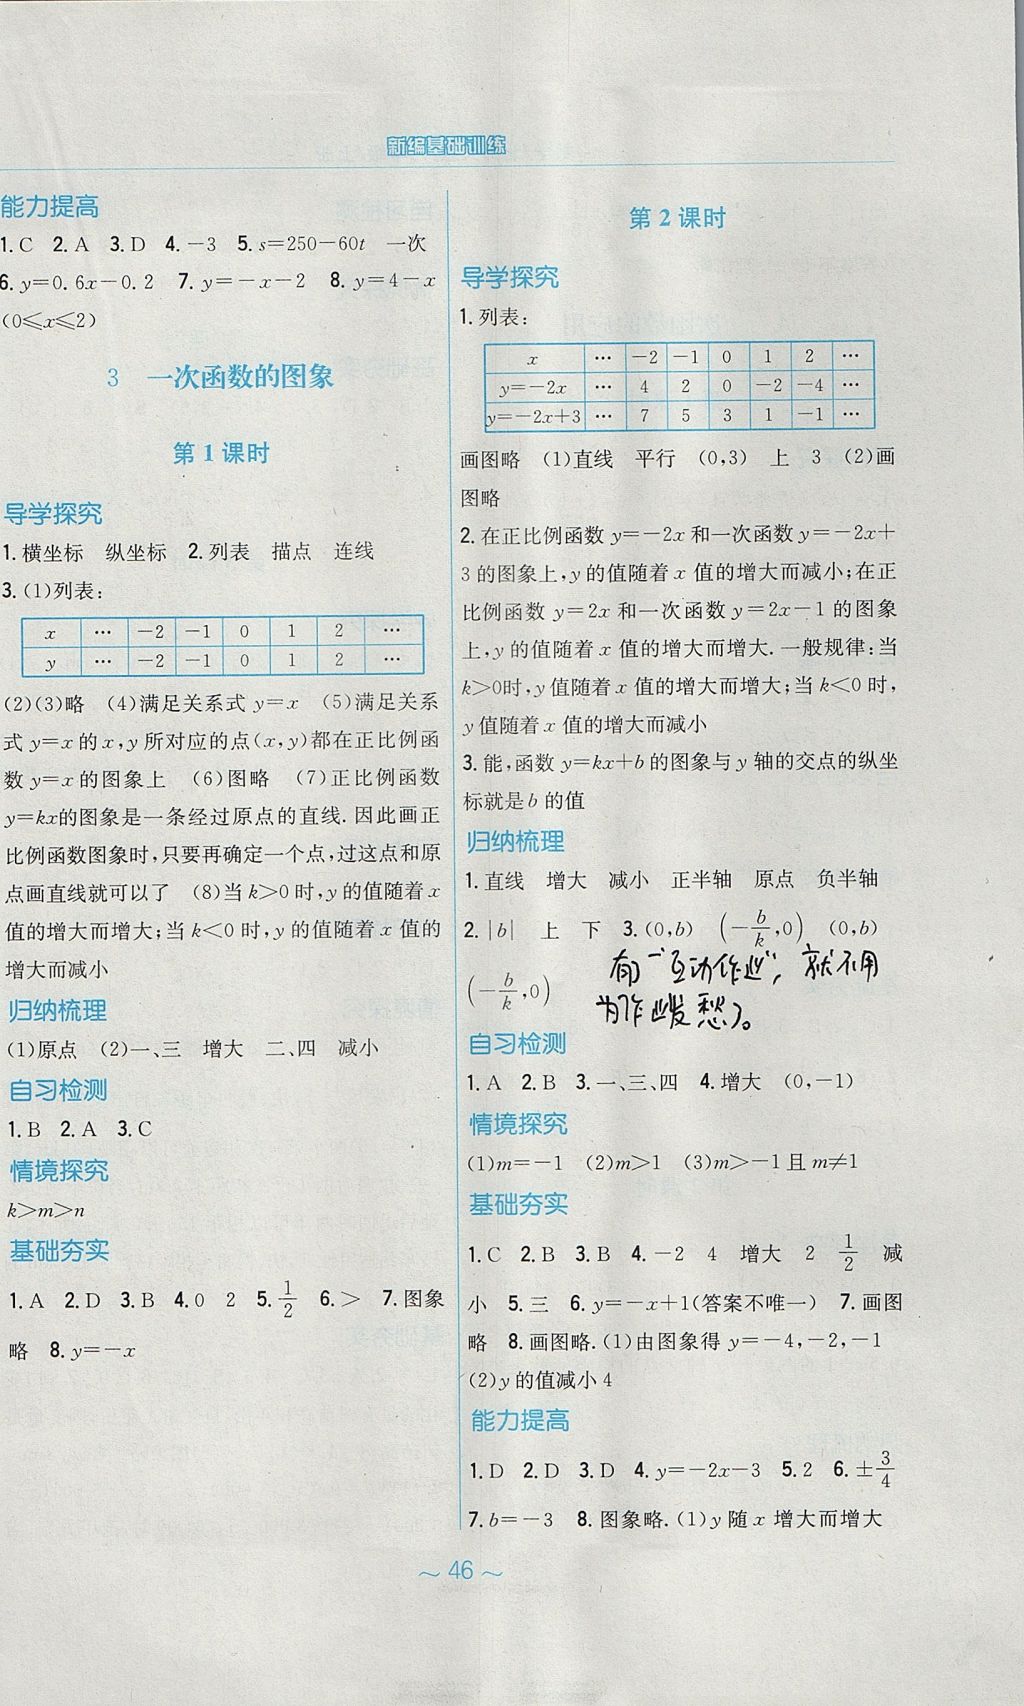 新编基础训练
能力提高
1.C 2.A 3.D 4.－3 5.s=250－60t 一次
6.y=0.6x－0.2 7.y=－x－2 8.y=4－x
(0⩽x⩽2)
3 一次函数的图象
第1课时
导学探究
1.横坐标 纵坐标 2.列表 描点 连线
3.(1)列表:
x … －2 －1 0 1 2 …
y … －2 －1 0 1 2 …
(2)(3)略 (4)满足关系式y=x (5)满足关系
式y=x的x,y所对应的点(x,y)都在正比例函
数y=x的图象上 (6)图略 (7)正比例函数
y=kx的图象是一条经过原点的直线.因此画正
比例函数图象时,只要再确定一个点,过这点和原
点画直线就可以了 (8)当k>0时,y的值随着x
值的增大而增大;当k<0时,y的值随着x值的
增大而减小
归纳梳理
(1)原点 (2)一、三 增大 二、四 减小
自习检测
1.B 2.A 3.C
情境探究
k>m>n
基础夯实
1.A 2.D 3.B 4.0 2 5.1/2 6.> 7.图象
略 8.y=－x
第2课时
导学探究
1.列表:
x … －2 －1 0 1 2 …
y=－2x … 4 2 0 －2 －4 …
y=－2x+3 … 7 5 3 1 －1 …
画图略 (1)直线 平行 (0,3) 上 3 (2)画
图略
2.在正比例函数y=－2x和一次函数y=－2x+
3的图象上,y的值随着x值的增大而减小;在正
比例函数y=2x和一次函数y=2x－1的图象
上,y的值随着x值的增大而增大.一般规律:当
k>0时,y值随着x值的增大而增大;当k<0时,
y值随着x值的增大而减小
3.能,函数y=kx+b的图象与y轴的交点的纵坐
标就是b的值
归纳梳理
1.直线 增大 减小 正半轴 原点 负半轴
2.|b| 上 下 3.(0,b) (－b/k,0) (0,b)
(－b/k,0)
有"互动作业",就不用
为作业发愁了。
自习检测
1.A 2.B 3.一、三、四 4.增大 (0,－1)
情境探究
(1)m=－1 (2)m>1 (3)m>－1且m≠1
基础夯实
1.C 2.B 3.B 4.－2 4 增大 2 1/2 减
小 5.三 6.y=－x+1(答案不唯一) 7.画图
略 8.画图略.(1)由图象得y=－4,－2,－1
(2)y的值减小4
能力提高
1.D 2.D 3.D 4.y=－2x－3 5.2 6.±3/4
7.b=－3 8.图象略.(1)y随x增大而增大
～46～